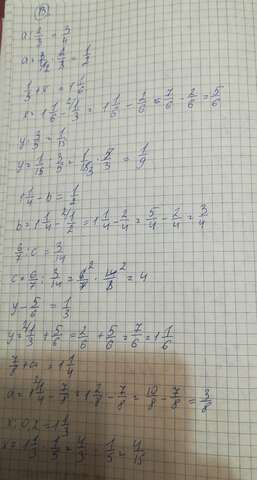 13.
a : 2/3 = 3/4
a = 3/4 · 2/3 = 1/2
1/3 + x = 1 1/6
x = 1 1/6 - 1/3 = 1 1/6 - 2/6 = 7/6 - 2/6 = 5/6
y · 3/5 = 1/15
y = 1/15 : 3/5 = 1/15 · 5/3 = 1/9
1 1/4 - b = 1/2
b = 1 1/4 - 1/2 = 1 1/4 - 2/4 = 5/4 - 2/4 = 3/4
6/7 : c = 3/14
c = 6/7 : 3/14 = 6/7 · 14/3 = 4
y - 5/6 = 1/3
y = 1/3 + 5/6 = 2/6 + 5/6 = 7/6 = 1 1/6
7/8 + a = 1 1/4
a = 1 1/4 - 7/8 = 1 2/8 - 7/8 = 10/8 - 7/8 = 3/8
x : 0,2 = 1 1/3
x = 1 1/3 · 1/5 = 4/3 · 1/5 = 4/15